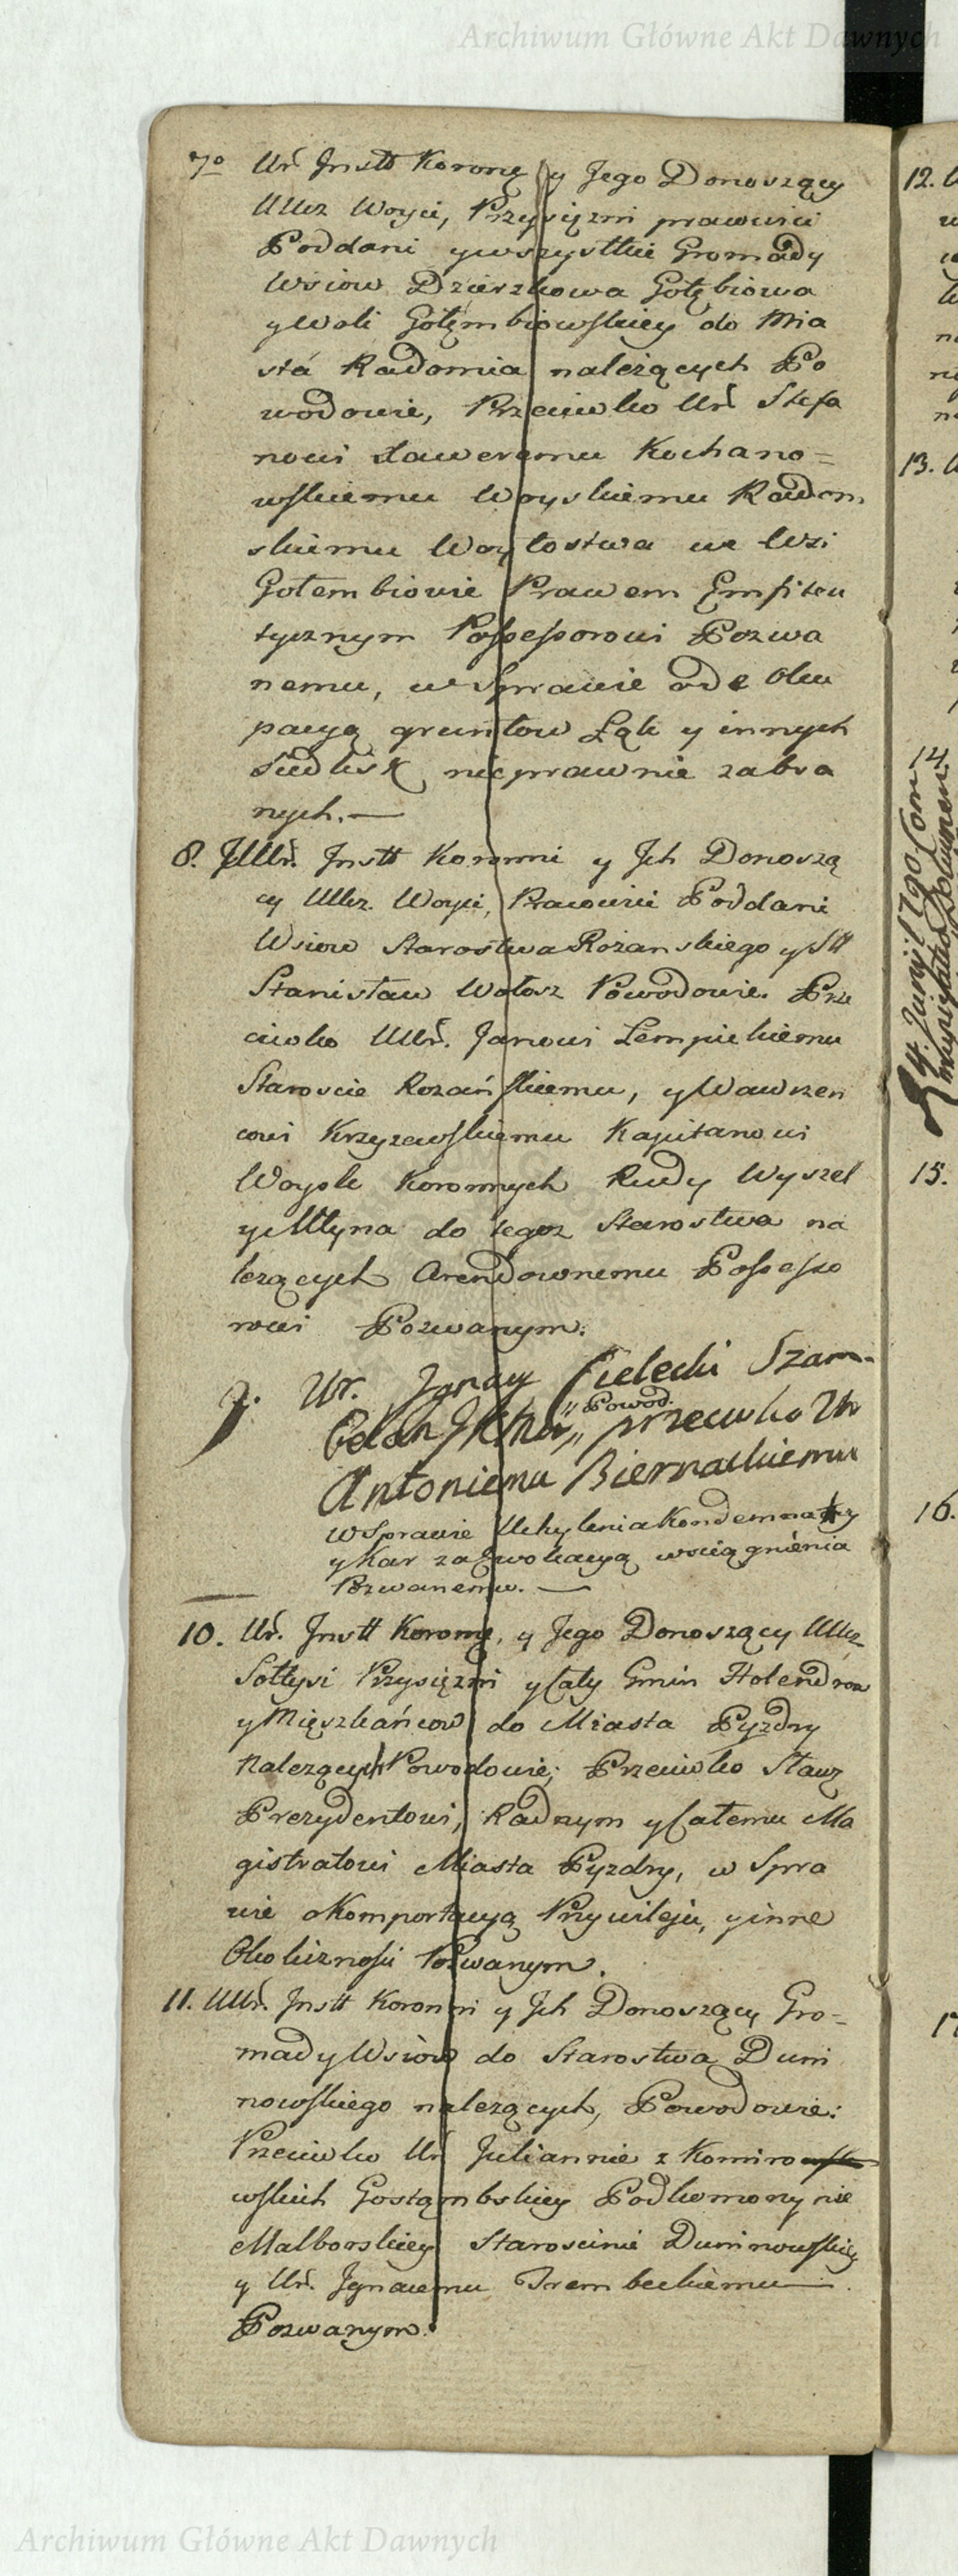 Archiwum Główne Akt Dawnych
7o Ur. Instt Koronę y Jego Donoszący
UUcz Woyci, Przysięzni pracowici
Poddani y wszystkie Gromady
Wsiow Dzierzkowa Gołębiowa
y Woli Gołęmbiowskiey do Mia
sta Radomia należących Po
wodowie, Przeciwko Ur. Stefa
nowi Xaweremu Kochano=
wskiemu Woyskiemu Radom
skiemu Woytostwa we Wsi
Gołembiowie Prawem Emfiteu
tycznym Possessorowi Pozwa
nemu, w Sprawie o Oku
pacyą gruntow Łąk y innych
Siedlisk nieprawnie zabra
nych.—
8. JUUr. Instt Koronni y Jch Donoszą
cy UUcz. Woyci, Pracowici Poddani
Wsiow Starostwa Rożanskiego y Stt
Stanisław Wołosz Powodowie. Prze
ciwko UUr. Janowi Lempickiemu
Staroscie Rozańskiemu, y Wawrzen
cowi Krzyzewskiemu Kapitanowi
Woysk Koronnych Rudy Wyszel
y Młyna do tegoz Starostwa na
lezących Arendownemu Possesso
rowi Pozwanym.
9. Ur. Ignacy Cielecki Szam-
belan JKMci „Powod.„ przeciwko Ur
Antoniemu Biernackiemu
w Sprawie Uchylenia Kondemnaty
y Kar za Ewokacyą wsciągnienia
Pozwanemu.—
10. Ur. Instt Koronę, y Jego Donoszący UUcz
Sołtysi Przysięzni y Cały Gmin Holendrow
y Mięszkańcow do Miasta Pyzdry
Nalezących Powodowie; Przeciwko Sławę
Prezydentowi, Radnym y Całemu Ma
gistratowi Miasta Pyzdry, w Spra
wie o Komportacyą Przywileju, y inne
Okoliznosci Pozwanym.
11. UUr. Instt Koronni y Jch Donoszący Gro=
mady Wsiow do Starostwa Duni
nowskiego nalezących, Powodowie:
Przeciwko Ur Juliannie z Komiro
wskich Gostąmbskiey Podkomorzynie
Malborskiey Starościnie Duninowskiey
y Ur. Ignacemu Trembeckiemu—.
Pozwanym.
12.
13.
14.
24. Junij 1790
15.
16.
17
Archiwum Główne Akt Dawnych